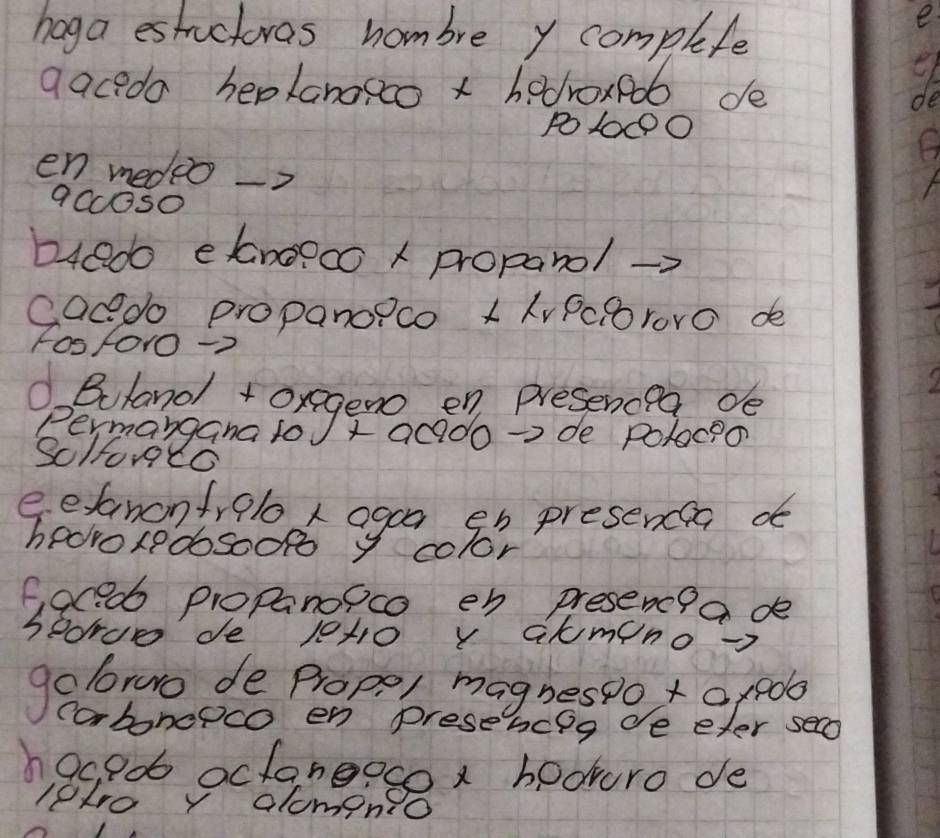 haga estructuras nombre y complete
a acido heptanoico + hidroxido de
potacio
en medio ->
acuoso
b acido etanoico + propanol ->
c acido propanoico + tricloruro de
Fosforo ->
d Butanol + oxigeno en presencia de
Permanganato + acido -> de potacio
Sulfurico
e. etanonitrilo + agua en presencia de
hidroxido sodio y calor
F, acido propanoico en presencia de
hidruro de litio y alumino ->
g cloruro de Propil magnesio + oxido
carbonoico en presencia de eter seco
h acido octanoico + hidruro de
litio y alominio